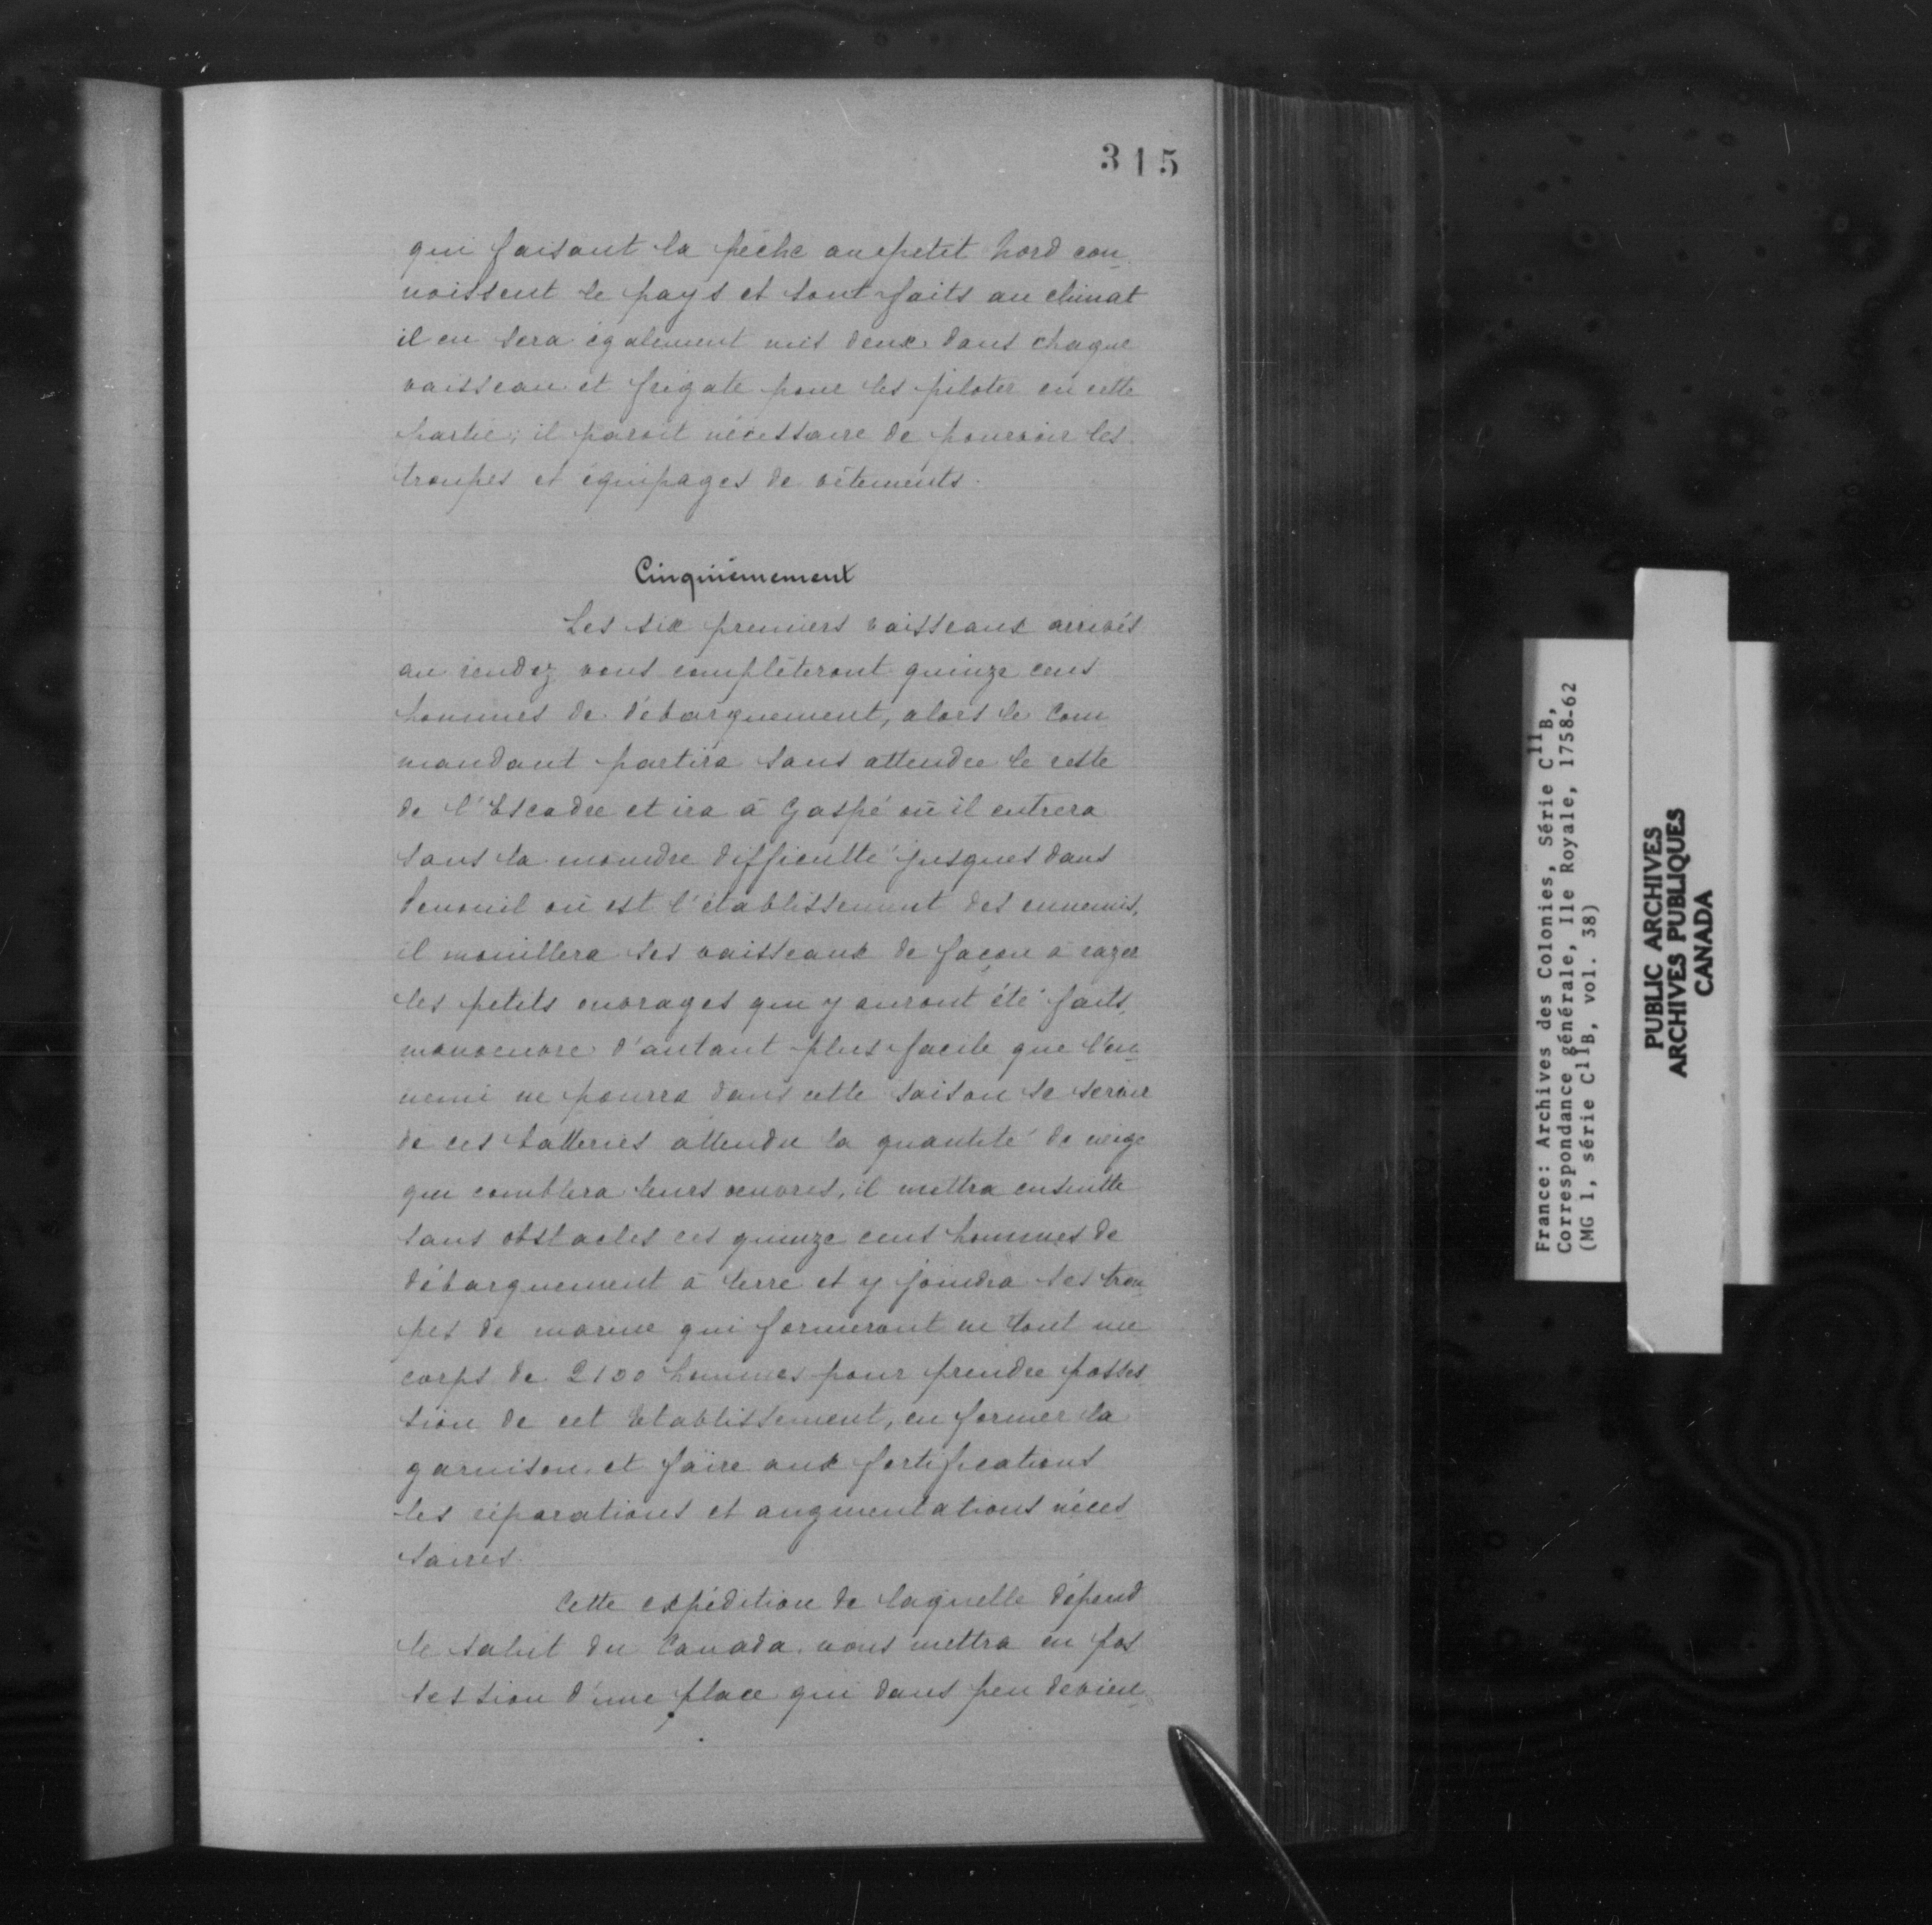 315
qui faisant la pêche au petit Nord con-
noissent le pays et sont faits au climat
il en sera également mis deux dans chaque
vaisseau et frégate pour les piloter en cette
partie; il paroit nécessaire de pourvoir les
troupes et équipages de vêtements.
Cinquièmement
Les six premiers vaisseaux arrivés
au rendez vous complèteront quinze cens
hommes de débarquement, alors le Com
mandant partira sans attendre le reste
de l'Escadre et ira à Gaspé où il entrera
sans la moindre difficulté jusques dans
où est l'établissement des ennemis,
il mouillera ses vaisseaux de façon à razer
les petits ouvrages qui y auront été faits,
manoeuvre d'autant plus facile que l'en-
nemi ne pourra dans cette saison se servir
de ces batteries attendu la quantité de neige
qui comblera leurs oeuvres, il mettra ensuitte
sans obstacles ces quinze cens hommes de
débarquement à terre et y joindra ses trou-
pes de marine qui formeront en tout un
corps de 2100 hommes pour prendre posses-
sion de cet Etablissement, en former la
garnison et faire aux fortifications
les réparations et augmentations néces
saires.
Cette expédition de laquelle dépend
le salut du Canada nous mettra en pos
session d'une place qui dans peu devien-
France: Archives des Colonies, Série C11B,
Correspondance générale, Ile Royale, 1758-62
(MG 1, série C11B, vol. 38)
PUBLIC ARCHIVES
ARCHIVES PUBLIQUES
CANADA